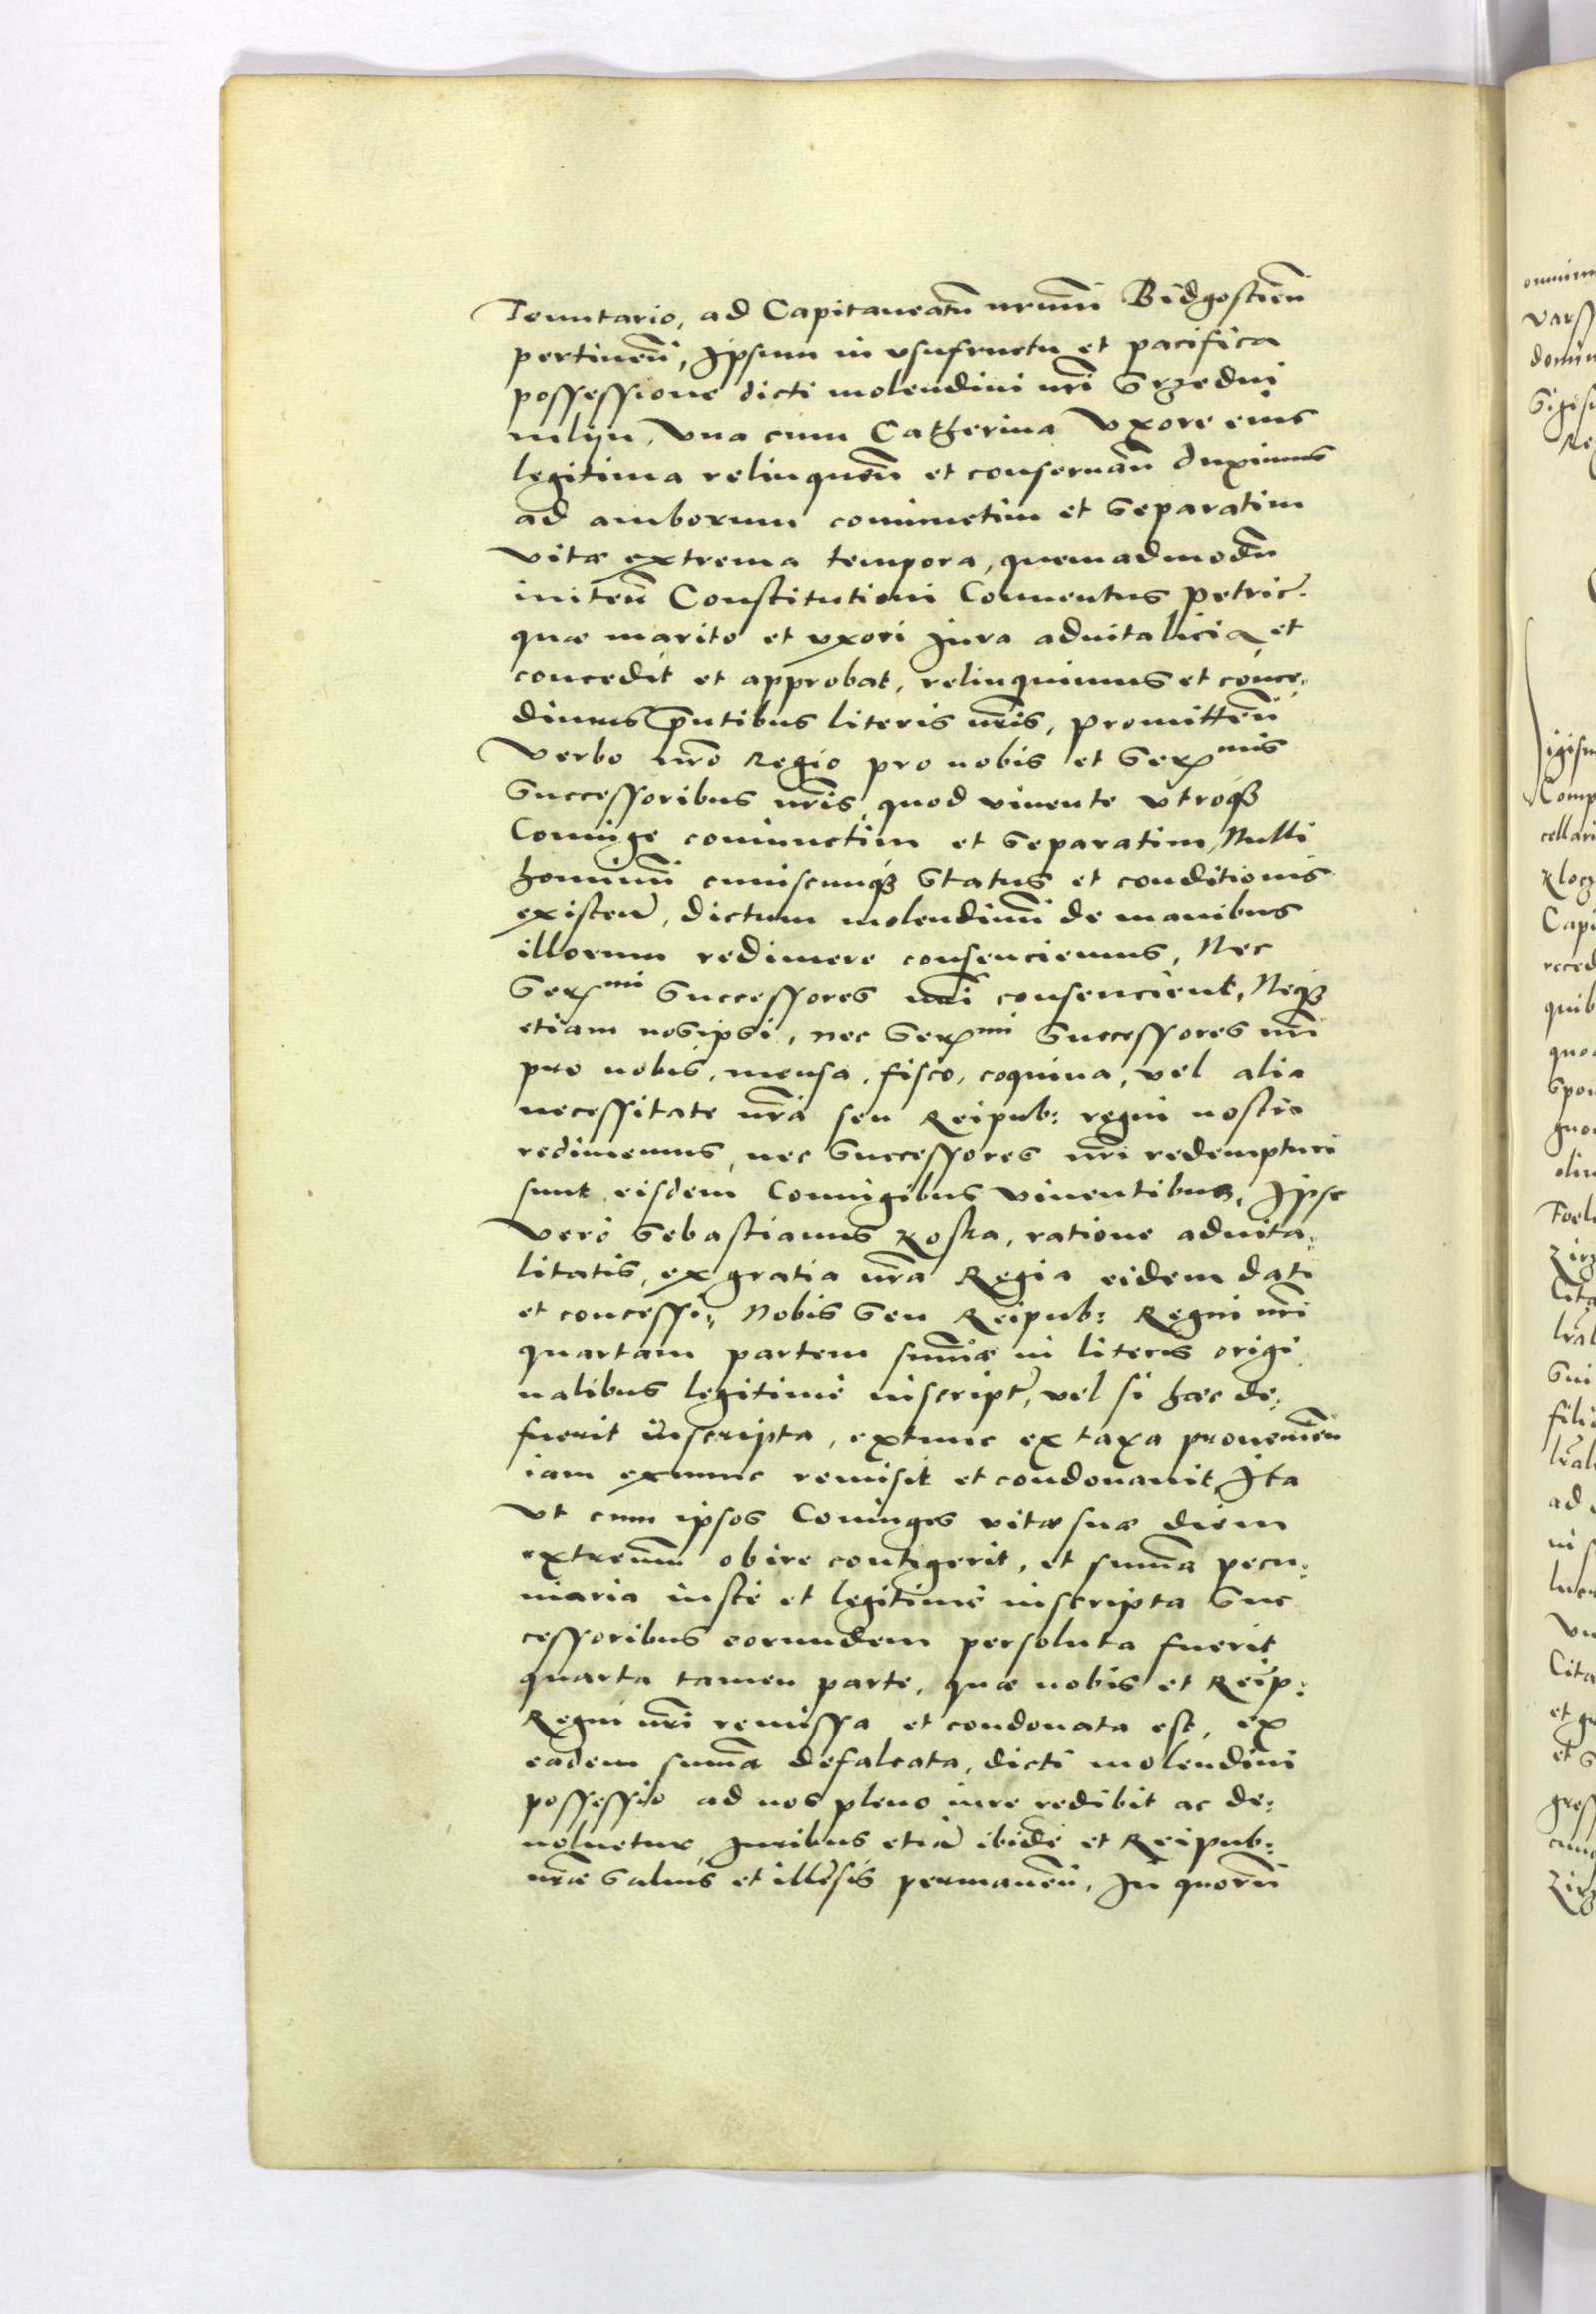 Tenutario, ad Capitaneatū nrūm Bidgostien̄
pertinen̄, Ipsum in vsufructu et pacifica
possessione dicti molendini nrī Srzedni
mlijn, Vna cum Catherina Vxore eius
legitima relinquen̄ et conseruan̄ duximus
ad amborum coniunctim et separatim
vitæ extrema tempora, quemadmodū
initen̄ Constitutioni Conuentus petric.
quæ marito et vxori Jura aduitalicia et
concedit et approbat, relinquimus et conce,
dimus p̄ntibus literis nrīs, promitten̄
Verbo nrō Regio pro nobis et Ser mis
Successoribus nrīs, quod viuente vtroq3
Coniuge coniunctim et separatim, Nulli
hominū cuiuscunq3 status et conditionis
existen̄, dictum molendinū de manibus
illorum redimere consenciemus, Nec
Ser mi Successores nrī consencient, Neq3
etiam nosipsi, nec Ser mi Successores nrī
pro nobis, mensa, fisco, coquina, vel alia
necessitate nrā seu Reipub: regni nostro
redimemus, nec Successores nrī redempturi
sunt eisdem Coniugibus viuentibus, Ipse
vero Sebastianus Koska, ratione aduita,
litatis, ex gratia nrā Regia eidem dati
et concessi,, Nobis seu Reipub: Regni nrī
quartam partem sum̄æ in literis origi
nalibus legitime inscript, vel si hæc de,
fuerit inscripta, extunc ex taxa prouenien̄
iam exnunc remisit et condonauit, Ita
vt cum ipsos Coniuges vitæ suæ diem
extremum obire contigerit, et sum̄a pecu:
niaria iuste et legitime inscripta Suc
cessoribus eorundem persoluta fuerit
quarta tamen parte, quæ nobis et Reip:
Regni nrī remissa et condonata est, ex
eadem sum̄a defalcata, dicti molendini
possessio ad nos pleno iure redibit ac de:
uoluetur, Juribus etiā ibidē et Reipub:
nrǣ saluis et illesis permanen̄, In quorū